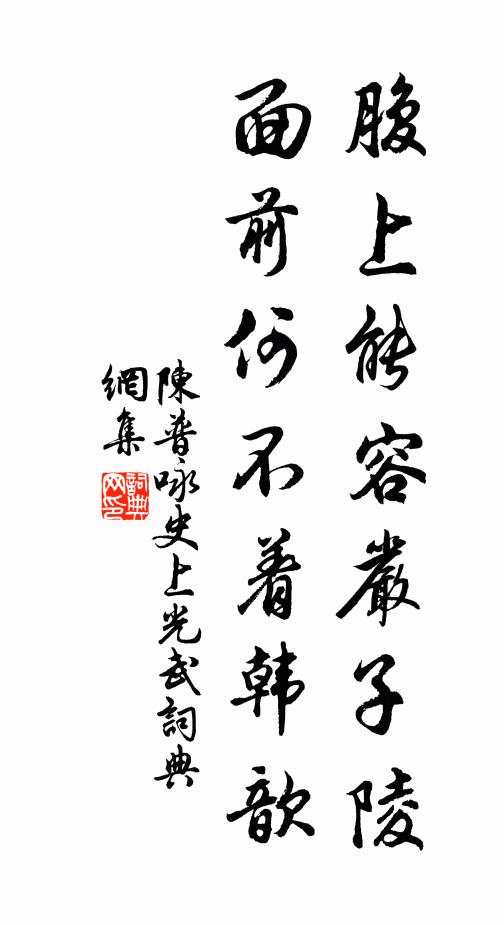 腹上能容嚴子陵
面前何不着韩歆
陳普咏史上光武詞典
網集
詞典网印